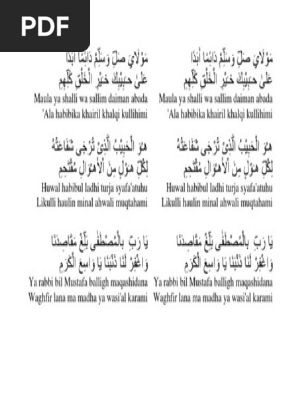 PDF
مَوْلَايَ صَلِّ وَسَلِّمْ دَائِمًا أَبَدًا
عَلَىٰ حَبِيْبِكَ خَيْرِ الْخَلْقِ كُلِّهِمِ
Maula ya shalli wa sallim daiman abada
'Ala habibika khairil khalqi kullihimi
هُوَ الْحَبِيْبُ الَّذِيْ تُرْجَى شَفَاعَتُهُ
لِكُلِّ هَوْلٍ مِنَ الْأَهْوَالِ مُقْتَحِمِ
Huwal habibul ladhi turja syafa'atuhu
Likulli haulin minal ahwali muqtahami
يَا رَبِّ بِالْمُصْطَفَى بَلِّغْ مَقَاصِدَنَا
وَاغْفِرْ لَنَا ذَنْبَنَا يَا وَاسِعَ الْكَرَمِ
Ya rabbi bil Mustafa balligh maqashidana
Waghfir lana ma madha ya wasi'al karami
مَوْلَايَ صَلِّ وَسَلِّمْ دَائِمًا أَبَدًا
عَلَىٰ حَبِيْبِكَ خَيْرِ الْخَلْقِ كُلِّهِمِ
Maula ya shalli wa sallim daiman abada
'Ala habibika khairil khalqi kullihimi
هُوَ الْحَبِيْبُ الَّذِيْ تُرْجَى شَفَاعَتُهُ
لِكُلِّ هَوْلٍ مِنَ الْأَهْوَالِ مُقْتَحِمِ
Huwal habibul ladhi turja syafa'atuhu
Likulli haulin minal ahwali muqtahami
يَا رَبِّ بِالْمُصْطَفَى بَلِّغْ مَقَاصِدَنَا
وَاغْفِرْ لَنَا ذَنْبَنَا يَا وَاسِعَ الْكَرَمِ
Ya rabbi bil Mustafa balligh maqashidana
Waghfir lana ma madha ya wasi'al karami